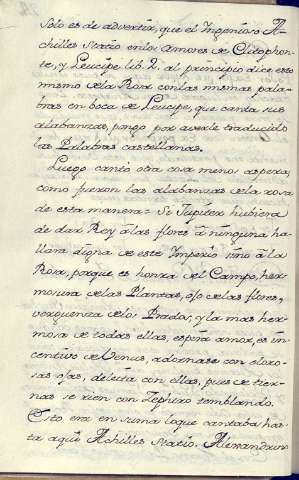 Solo es de advertir, que el Ingenioso A-
chilles Statio en los Amores de Clitophon-
te, y Leucipe lib. 2. al principio dice esto
mismo de la Rosa con las mismas pala-
bras en boca de Leucipe, que canta sus
alabanzas, pongo por averle traducido
las Palabras castellanas.
Luego cantò otra cosa menos aspera,
como fueron las alabanzas de la rosa
de esta manera = Si Jupiter hubiera
de dar Rey à las flores à ninguna ha-
llara digna de este Imperio sino à la
Rosa, porque es honra del Campo, her-
mosura de las Plantas, ojo de las flores,
verguenza de los Prados, y la mas her-
mosa de todas ellas, espira amor, es in-
centivo de Venus, adornase con oloro-
sas ojas, deleita con ellas, pues de tier-
nas se rien con Zephiro temblando.
Esto era en suma loque cantaba has-
ta aqui Achilles Statio. Alexandrino